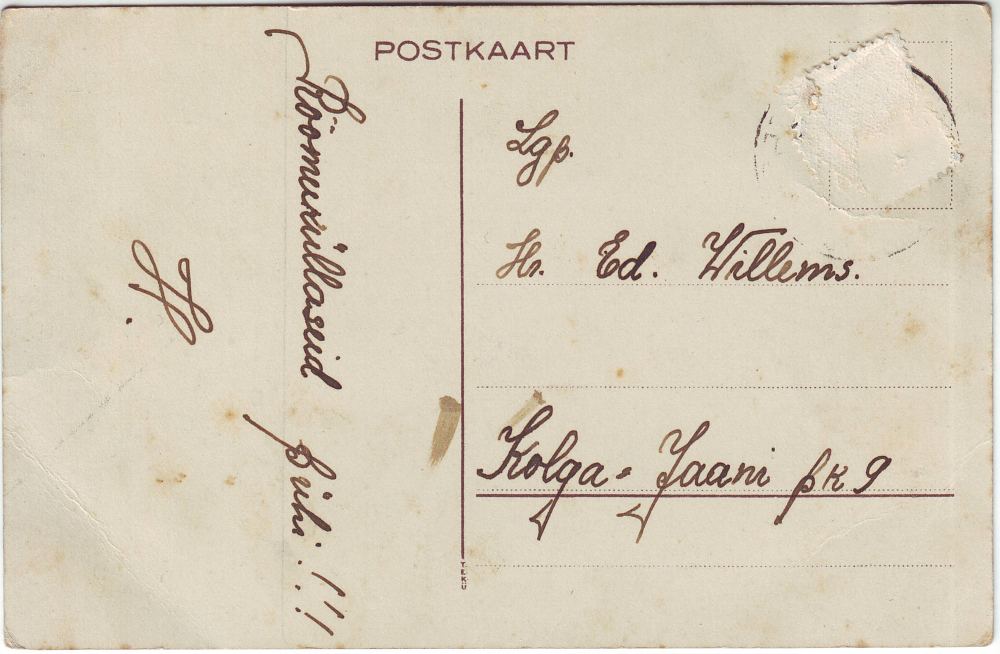 POSTKAART
Rõõmurillaseid pühi!!!
H.
Lgp.
Hr. Ed. Willems.
Kolga-Jaani pk 9
TEKU